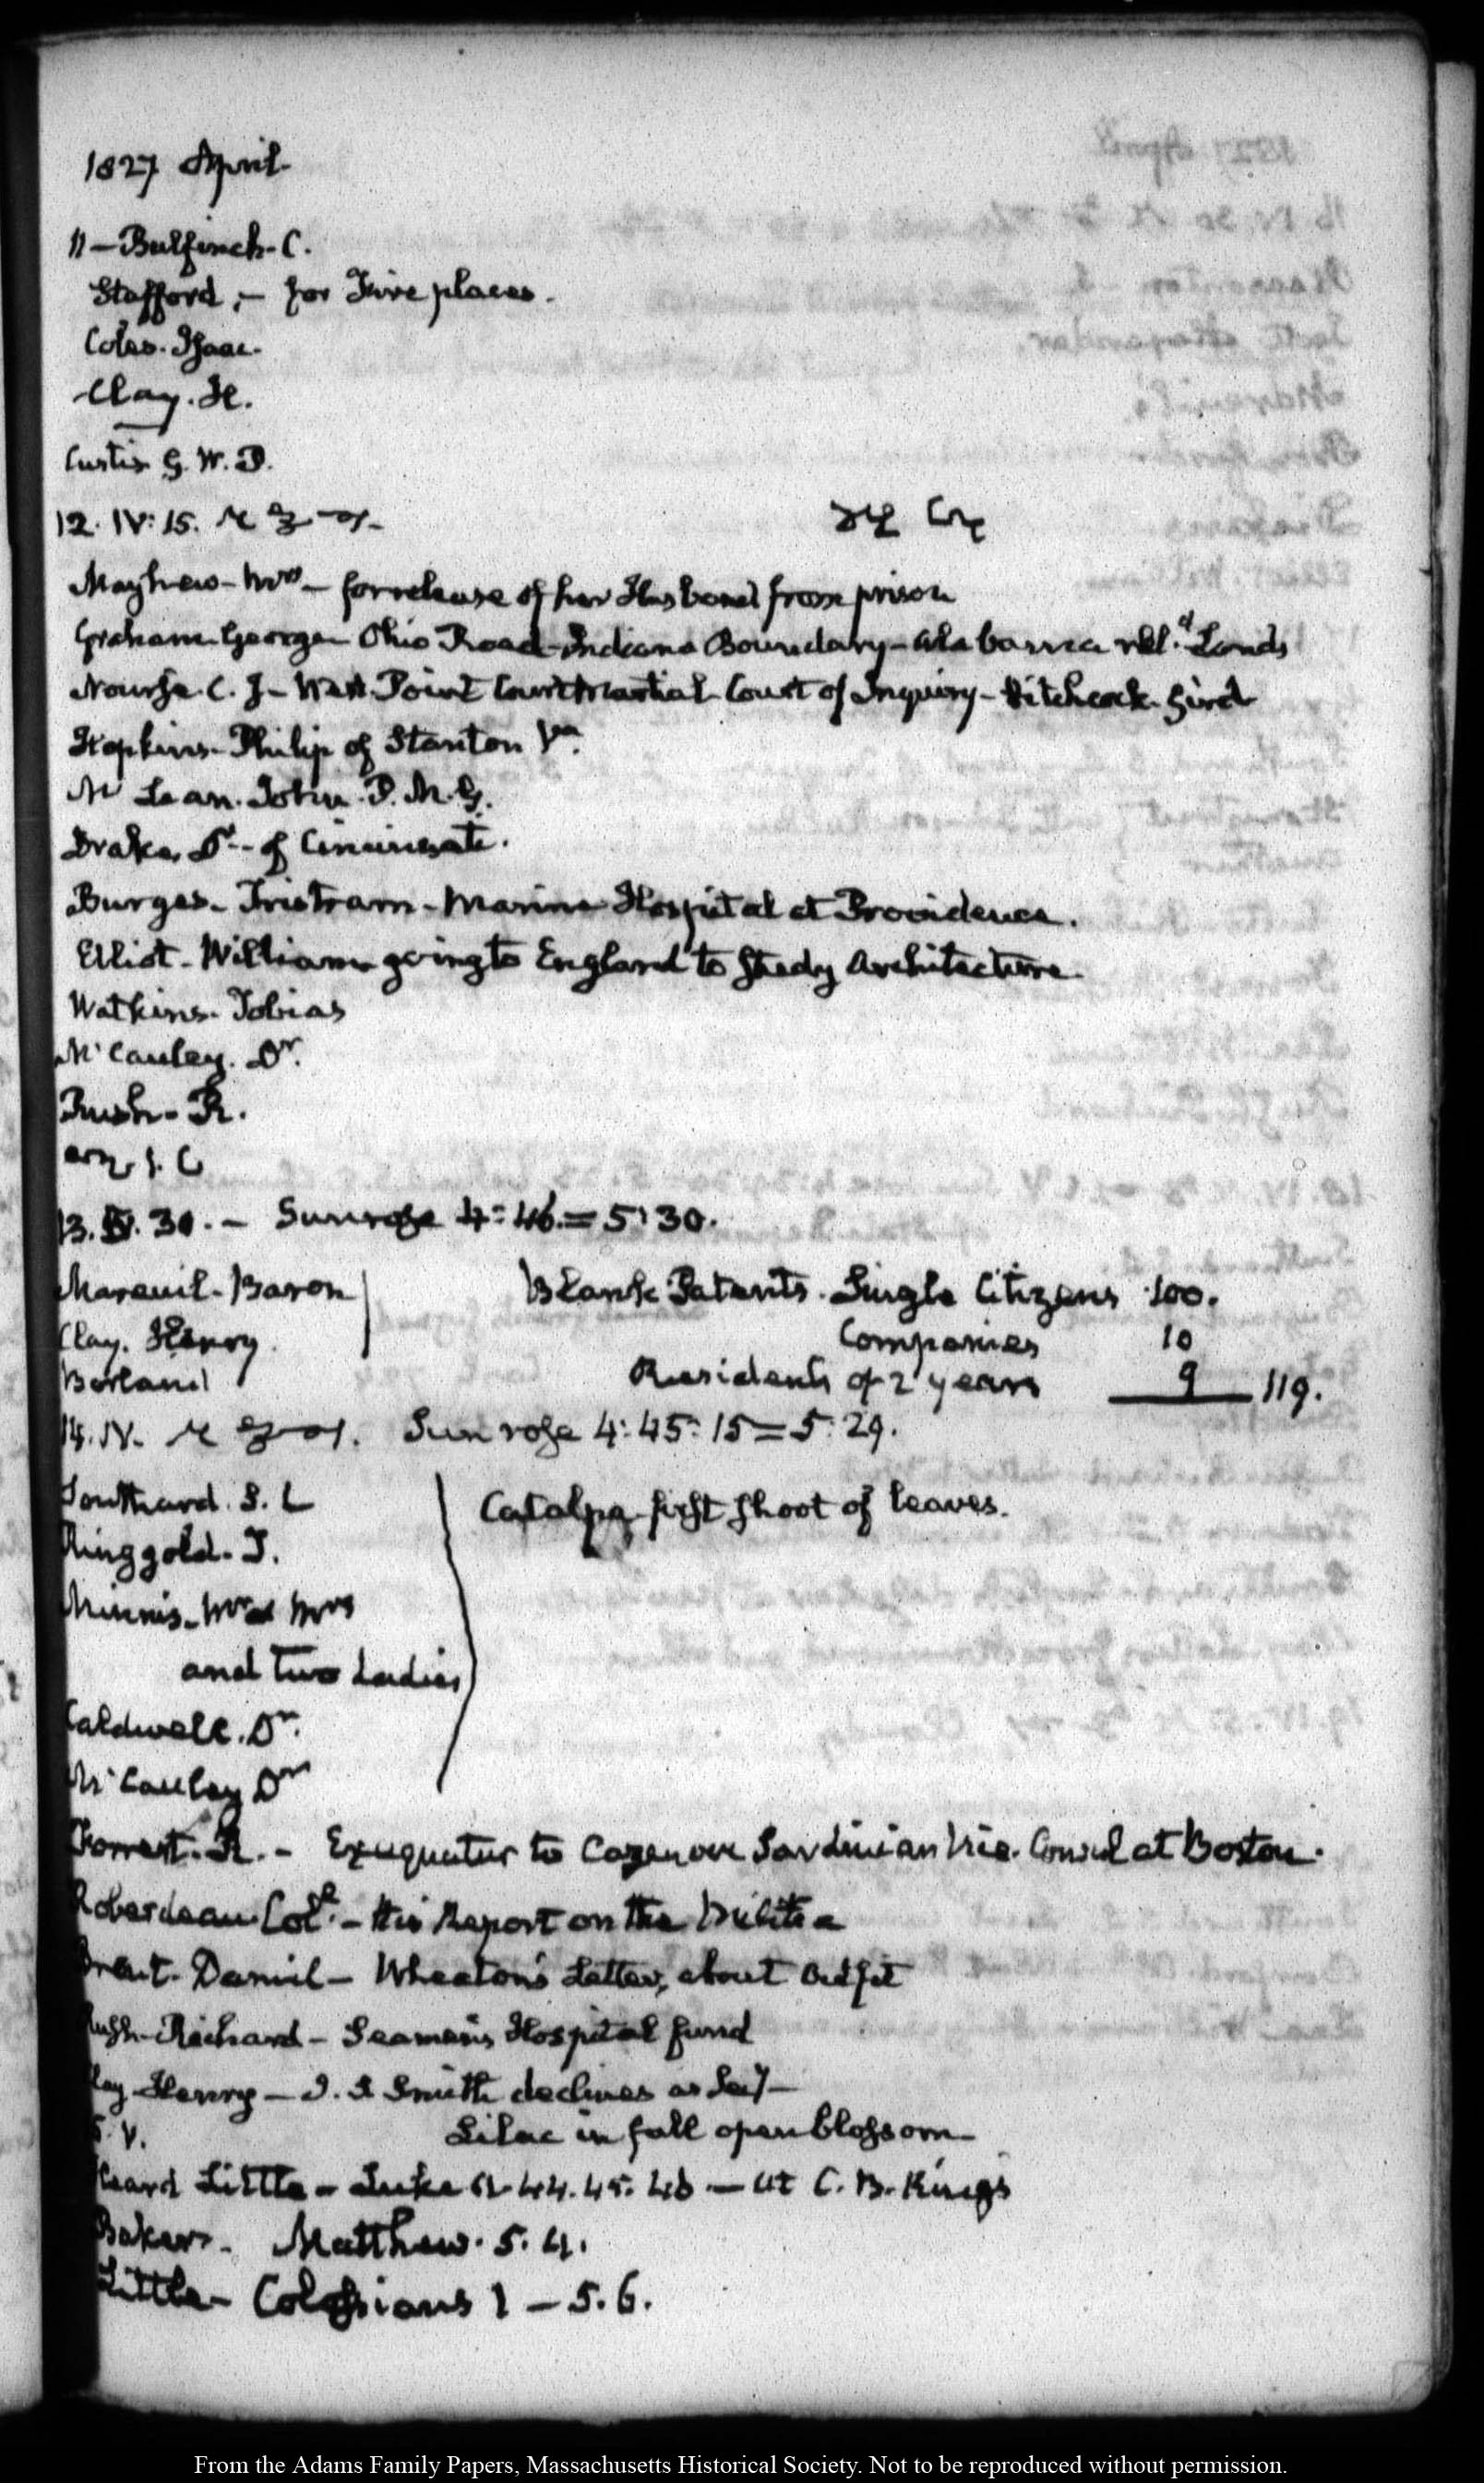 1827 April
11 – Bulfinch. C.
Stafford, – for Fire places.
Coles. Isaac.
Clay. H.
Custis G. W. P.
12. IV: 15.
Mayhew – Mrs – for release of her Husband from prison
Graham George – Ohio Road – Indiana Boundary – Alabama rel.d Lands
Nourse C. J – West Point Court Martial Court of Inquiry – Hitchcock.
Hopkins – Philip of Stanton Va.
Mc Lean. John. P. M. G.
Drake, Dr – of Cincinnati.
Burges – Tristram – Marine Hospital at Providence.
Elliot – William going to England to study Architecture.
Watkins – Tobias
Mc Cauley. Dr.
Rush – R.
13. IV. 30. – Sun rose 4: 46. = 5: 30.
Mareuil – Baron
Blank Patents. Single Citizens 100.
Clay. Henry
Companies 10
Borland
Residents of 2 years 9 119.
14. IV. Sun rose 4: 45: 15 = 5: 29.
Southard. S. L
Catalpa first shoot of leaves.
Ringgold. T.
Minnis – Mr and Mrs
and two Ladies
Caldwell. Dr.
Mc Cauley Dr
Forrest. R. – Exequatur to Cazenove Sardinian Vice. Consul at Boston.
Roberdeau Col. – His Report on the Militia
Brent – Daniel – Wheaton's Letter, about Outfit
Rush – Richard – Seamen's Hospital fund
Clay Henry – Smith declines as Sec'y –
15. V. Lilac in full open blossom –
Heard Little – Luke 44. 45. 46 – at C. B. King's
Baker – Matthew. 5. 4.
Little – Colossians 1 – 5. 6.
From the Adams Family Papers, Massachusetts Historical Society. Not to be reproduced without permission.